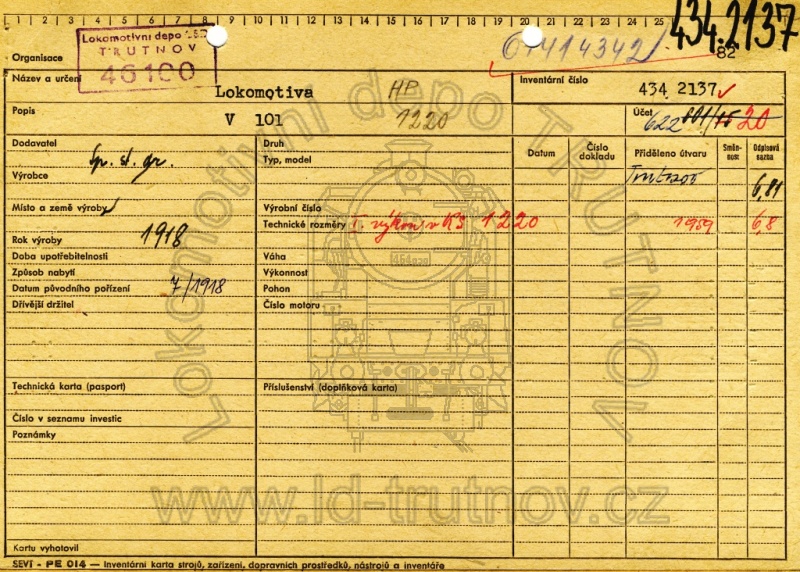 1 2 3 4 5 6 7 8 9 10 11 12 13 14 15 16 17 18 19 20 21 22 23 24 25
434.2137
Lokomotivní depo ČSD
TRUTNOV
46100
82
Organisace
Název a určení
Lokomotiva
HP
Inventární číslo
434 2137
Popis
V 101
1220
Účet
622
20
Dodavatel
Výrobce
Místo a země výroby
Rok výroby
1918
Doba upotřebitelnosti
Způsob nabytí
Datum původního pořízení
7/1918
Dřívější držitel
Technická karta (pasport)
Číslo v seznamu investic
Poznámky
Kartu vyhotovil
Druh
Typ, model
Výrobní číslo
Technické rozměry
výkon v KS 1220
Váha
Výkonnost
Pohon
Číslo motoru
Příslušenství (doplňková karta)
Datum
Číslo dokladu
Přiděleno útvaru
Směn-nost
Odpisová sazba
Trutnov
6,81
1959
6,8
434.2137
Lokomotivní depo TRUTNOV
www.ld-trutnov.cz
SEVT - PE 014 — Inventární karta strojů, zařízení, dopravních prostředků, nástrojů a inventáře